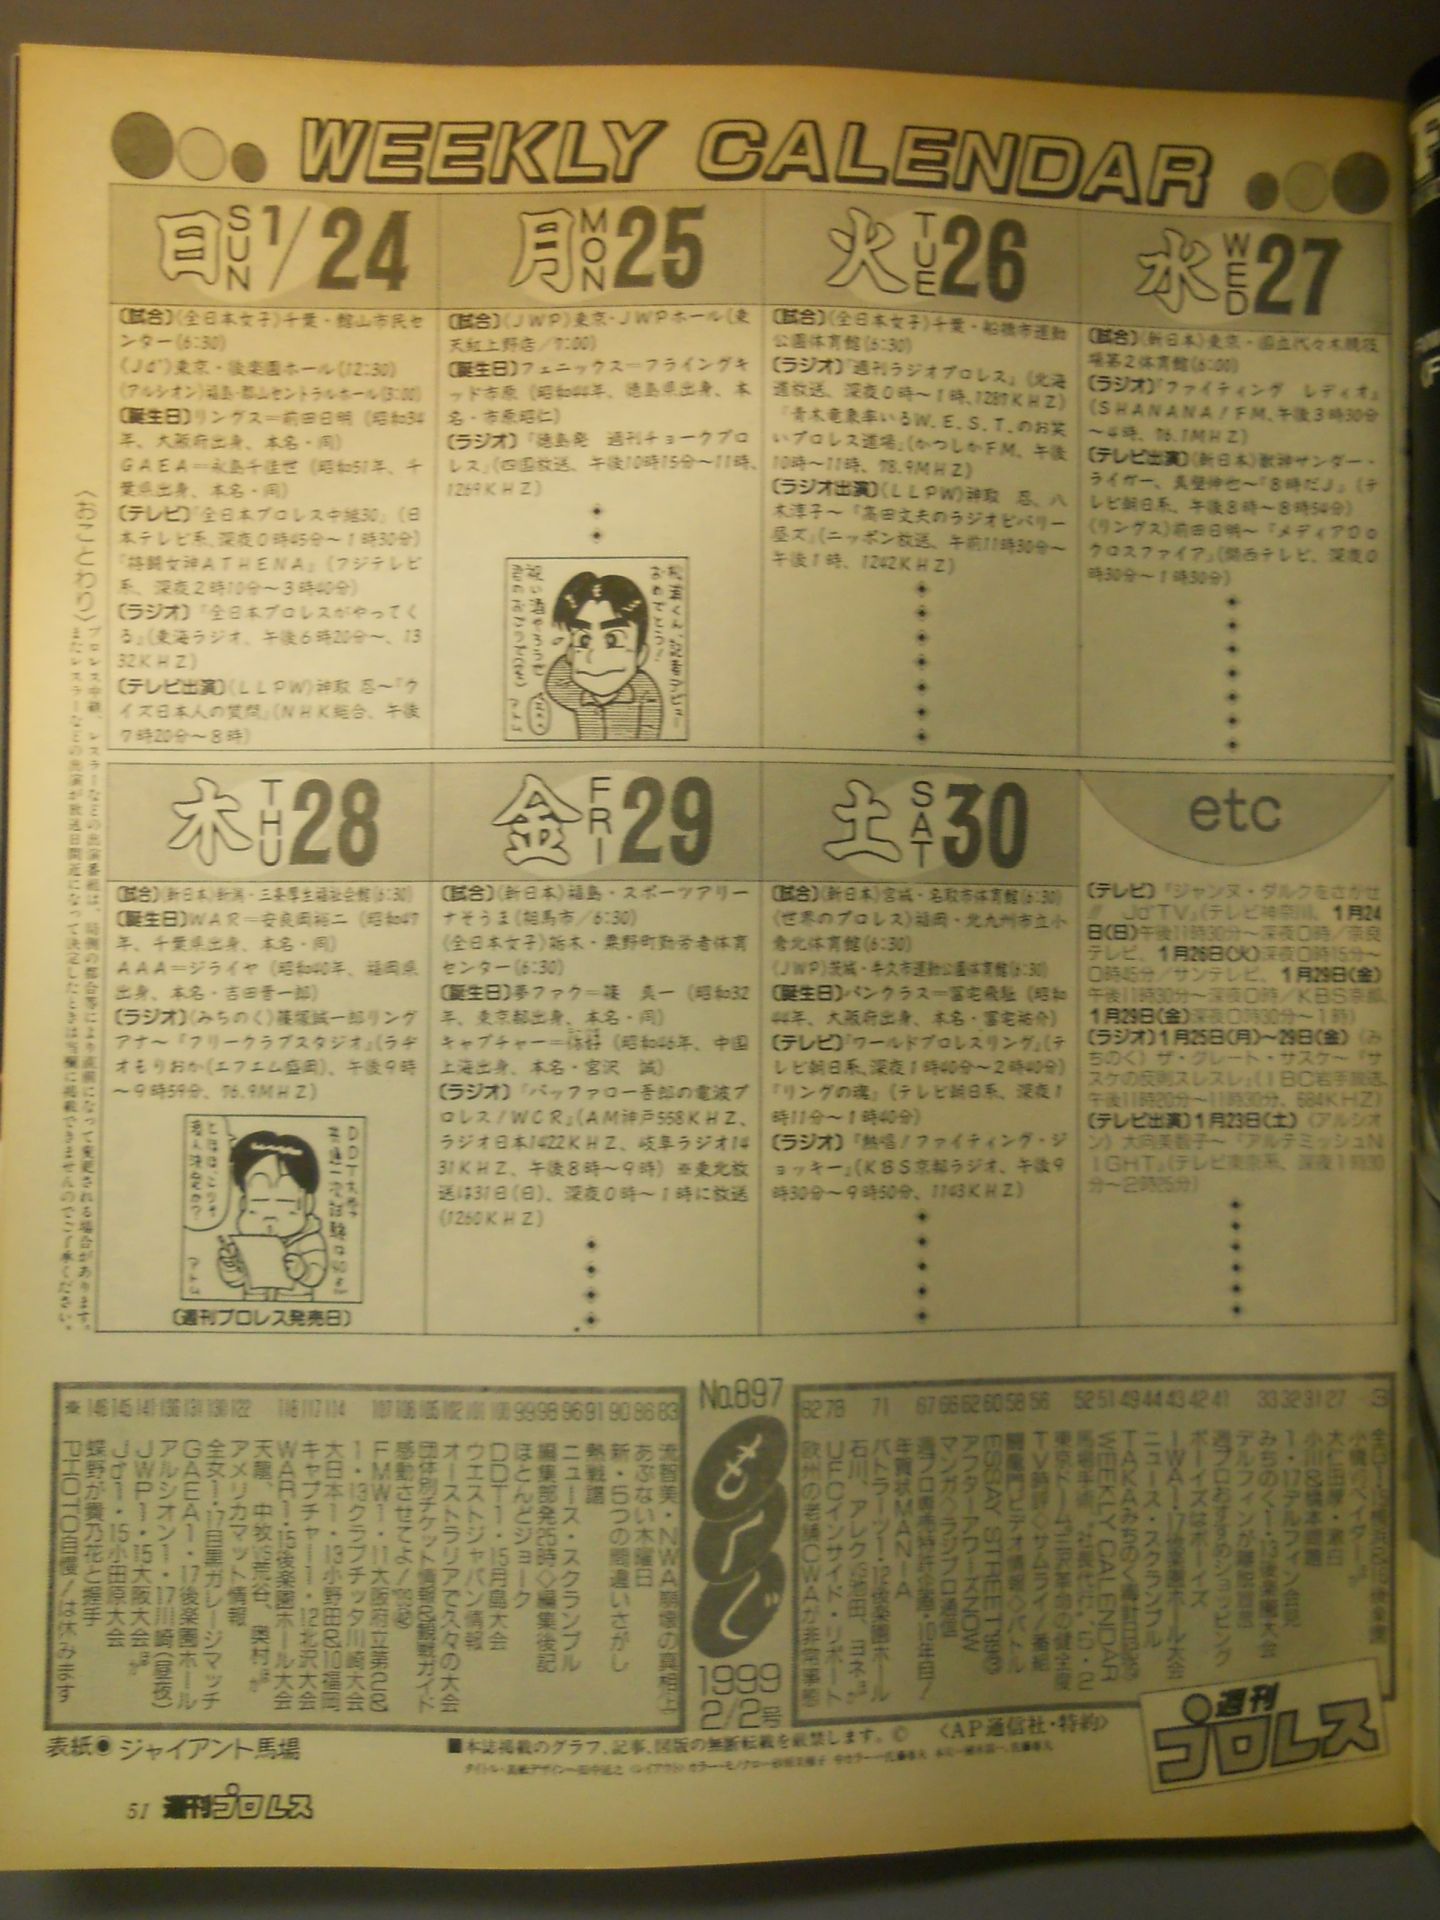 WEEKLY CALENDAR
日 SUN 1/24
〔試合〕〈全日本女子〉千葉・館山市民セ
ンター(6:30)
〈Jd'〉東京・後楽園ホール(12:30)
〈アルシオン〉福島・郡山セントラルホール(3:00)
〔誕生日〕リングス=前田日明(昭和34
年、大阪府出身、本名・同)
GAEA=永島千佳世(昭和51年、千
葉県出身、本名・同)
〔テレビ〕『全日本プロレス中継30』(日
本テレビ系、深夜0時45分〜1時30分)
『格闘女神ATHENA』(フジテレビ
系、深夜2時10分〜3時40分)
〔ラジオ〕『全日本プロレスがやってく
る』(東海ラジオ、午後6時20分〜、13
32KHZ)
〔テレビ出演〕〈LLPW〉神取 忍〜『ク
イズ日本人の質問』(NHK総合、午後
7時20分〜8時)
月 MON 25
〔試合〕〈JWP〉東京・JWPホール(東
天紅上野店/7:00)
〔誕生日〕フェニックス=フライングキ
ッド市原(昭和44年、徳島県出身、本
名・市原昭仁)
〔ラジオ〕『徳島発 週刊チョークプロ
レス』(四国放送、午後10時15分〜11時、
1269KHZ)
松浦くん、記者デビュー
おめでとう!
祝い酒やろうぜ
君のおごりで(笑)
アトム
火 TUE 26
〔試合〕〈全日本女子〉千葉・船橋市運動
公園体育館(6:30)
〔ラジオ〕『週刊ラジオプロレス』(北海
道放送、深夜0時〜1時、1287KHZ)
『青木竜乗率いるW.E.S.T.のお笑
いプロレス道場』(かつしかFM、午後
10時〜11時、78.9MHZ)
〔ラジオ出演〕〈LLPW〉神取 忍、八
木淳子〜『高田文夫のラジオビバリー
昼ズ』(ニッポン放送、午前11時30分〜
午後1時、1242KHZ)
水 WED 27
〔試合〕〈新日本〉東京・国立代々木競技
場第2体育館(6:00)
〔ラジオ〕『ファイティング レディオ』
(SHANANA!FM、午後3時30分
〜4時、76.1MHZ)
〔テレビ出演〕〈新日本〉獣神サンダー・
ライガー、真壁伸也〜『8時だJ』(テ
レビ朝日系、午後8時〜8時54分)
〈リングス〉前田日明〜『メディアDo
クロスファイア』(関西テレビ、深夜0
時30分〜1時30分)
木 THU 28
〔試合〕〈新日本〉新潟・三条厚生福祉会館(6:30)
〔誕生日〕WAR=安良岡裕二(昭和47
年、千葉県出身、本名・同)
AAA=ジライヤ(昭和40年、福岡県
出身、本名・吉田晋一郎)
〔ラジオ〕〈みちのく〉篠塚誠一郎リング
アナ〜『フリークラブスタジオ』(ラヂ
オもりおか(エフエム盛岡)、午後9時
〜9時59分、76.9MHZ)
アトム
〔週刊プロレス発売日〕
金 FRI 29
〔試合〕〈新日本〉福島・スポーツアリー
ナそうま(相馬市/6:30)
〈全日本女子〉栃木・粟野町勤労者体育
センター(6:30)
〔誕生日〕夢ファク=篠 真一(昭和32
年、東京都出身、本名・同)
(昭和46年、中国
上海出身、本名・宮沢 誠)
〔ラジオ〕『バッファロー吾郎の電波プ
ロレス!WCR』(AM神戸558KHZ、
ラジオ日本1422KHZ、岐阜ラジオ14
31KHZ、午後8時〜9時)※東北放
送は31日(日)、深夜0時〜1時に放送
(1260KHZ)
土 SAT 30
〔試合〕〈新日本〉宮城・名取市体育館(6:30)
〈世界のプロレス〉福岡・北九州市立小
倉北体育館(6:30)
〈JWP〉茨城・牛久市運動公園体育館(6:30)
〔誕生日〕パンクラス=冨宅飛駈(昭和
44年、大阪府出身、本名・冨宅祐介)
〔テレビ〕『ワールドプロレスリング』(テ
レビ朝日系、深夜1時40分〜2時40分)
『リングの魂』(テレビ朝日系、深夜1
時11分〜1時40分)
〔ラジオ〕『熱唱!ファイティング・ジ
ョッキー』(KBS京都ラジオ、午後9
時30分〜9時50分、1143KHZ)
etc
〔テレビ〕『ジャンヌ・ダルクをさがせ
!! Jd'TV』(テレビ神奈川、1月24
日(日)午後11時30分〜深夜0時/奈良
テレビ、1月26日(火)深夜0時15分〜
0時45分/サンテレビ、1月29日(金)
午後11時30分〜深夜0時/KBS京都、
1月29日(金)深夜0時30分〜1時)
〔ラジオ〕1月25日(月)〜29日(金)〈み
ちのく〉ザ・グレート・サスケ〜『サ
スケの反則スレスレ』(IBC岩手放送、
午後11時20分〜11時30分、684KHZ)
〔テレビ出演〕1月23日(土)〈アルシオ
ン〉大向美智子〜『アルテミッシュN
IGHT』(テレビ東京系、深夜1時30
分〜2時25分)
〈おことわり〉プロレス中継、レスラーなどの出演番組は、局側の都合等により直前になって変更される場合があります。
またレスラーなどの出演が放送日間近になって決定したときは当欄に掲載できませんのでご了承ください。
No.897
もくじ
1999
2/2号
31 小川&橋本問題
32 1・17デルフィン会見
33 みちのく1・13後楽園大会
デルフィンが離脱宣言
41 週プロおすすめショッピング
42 ボーイズはボーイズ
43 IWA1・17後楽園ホール大会
44 ニュース・スクランブル
51 WEEKLY CALENDAR
58 闘龍門ビデオ情報◇バトル
60 ESSAY STREET'99
62 アフターアワーズNOW
66 マンガ◇ラジプロ通信
年賀状MANIA
71 バトラーツ1・12後楽園ホール
78 UFCインサイド・リポート
82 欧州の老舗CWAが非常事態
83 流智美・NWA崩壊の真相(上)
86 あぶない木曜日
90 新・5つの間違いさがし
91 熱戦譜
96 ニュース・スクランブル
98 編集部発25時◇編集後記
99 ほとんどジョーク
100 DDT1・15月島大会
101 ウエストジャパン情報
102 オーストラリアで久々の大会
105 団体別チケット情報&観戦ガイド
106 感動させてよ!
107 FMW1・11大阪府立第2&
1・13クラブチッタ川崎大会
114 大日本1・13小野田&10福岡
117 キャプチャー1・12北沢大会
118 WAR1・15後楽園ホール大会
天龍、中牧vs荒谷、奥村ほか
122 アメリカマット情報
130 全女1・17目黒ガレージマッチ
131 GAEA1・17後楽園ホール
136 アルシオン1・17川崎(昼夜)
141 JWP1・15大阪大会ほか
145 Jd'1・15小田原大会
146 蝶野が貴乃花と握手
※ PHOTO自慢!は休みます
表紙●ジャイアント馬場
■本誌掲載のグラフ、記事、図版の無断転載を厳禁します。© 〈AP通信社・特約〉
週刊
プロレス
51 週刊プロレス